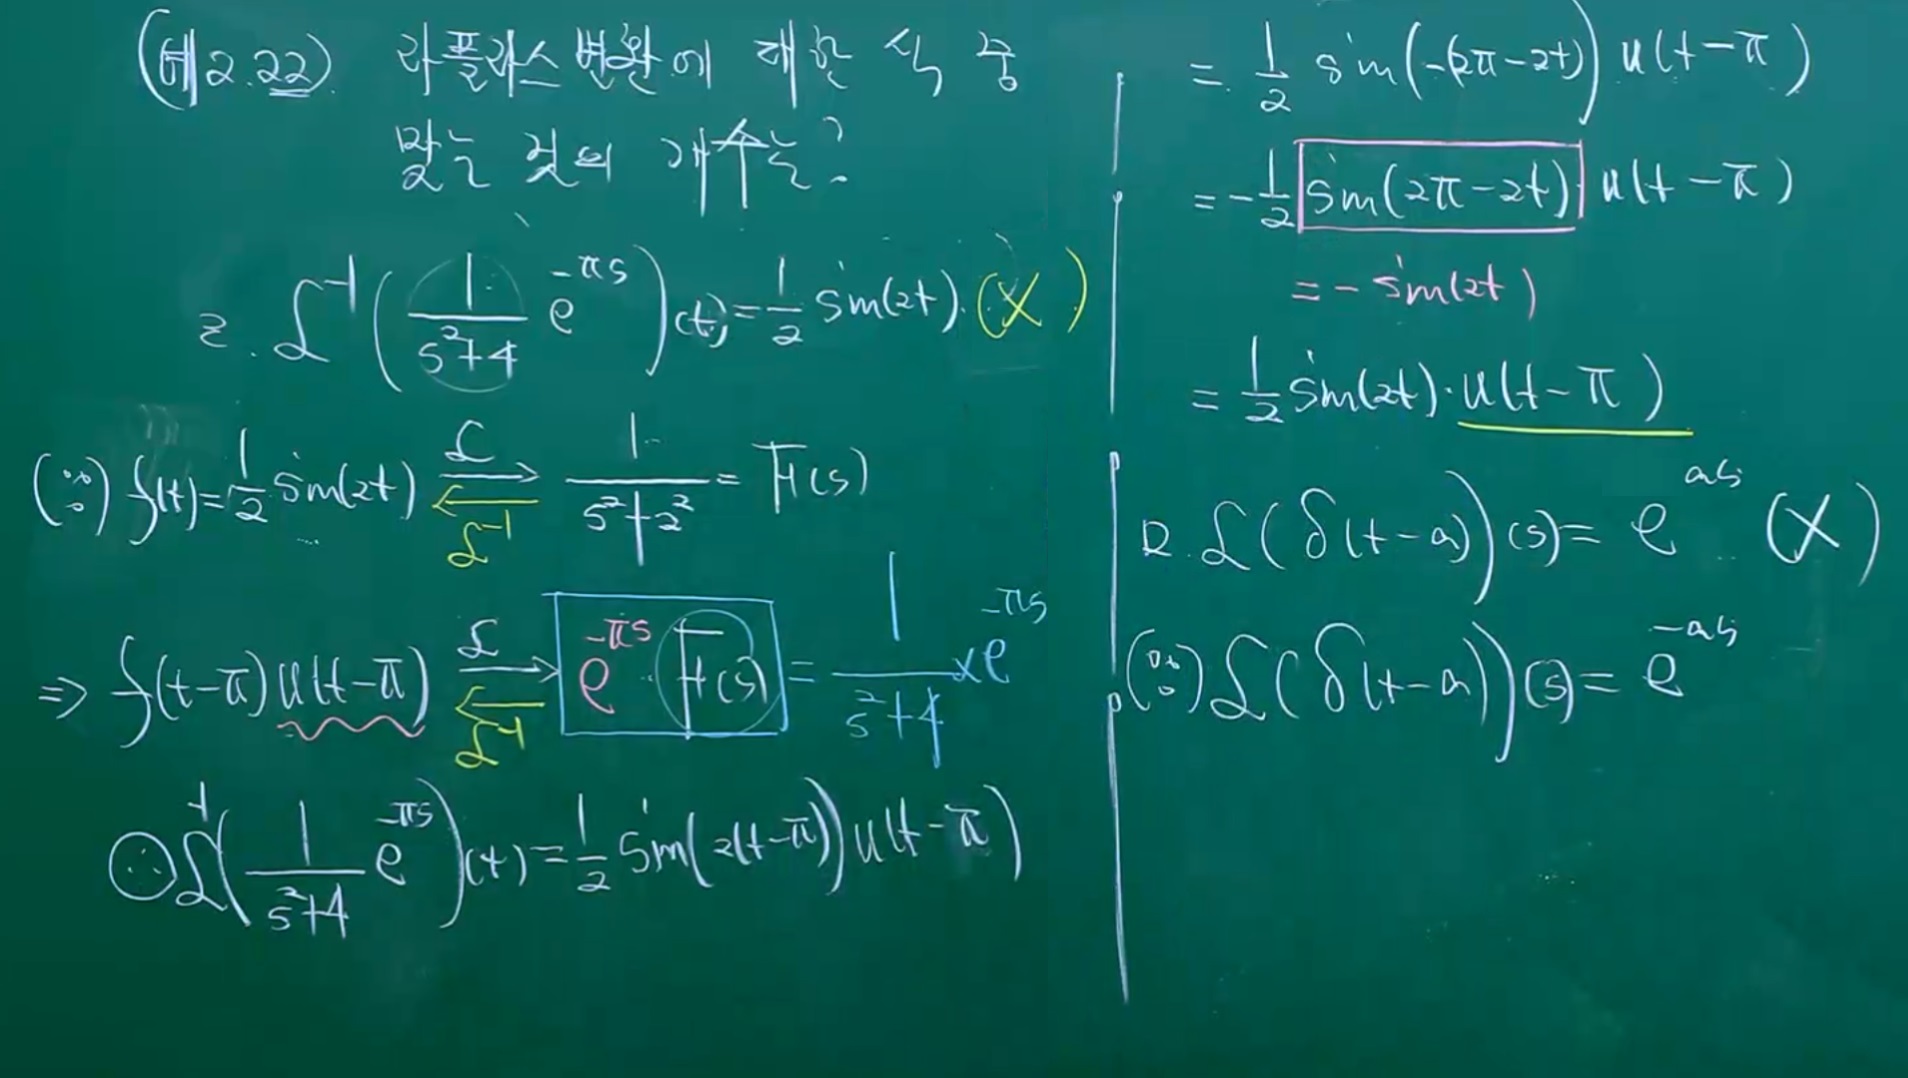 (예 2.22). 라플라스 변환에 대한 식 중
맞는 것의 개수는?
ㄹ. ℒ⁻¹( 1/(s²+4) e^(-πs) )(t) = 1/2 sin(2t). (X)
(∵) f(t) = 1/2 sin(2t) ℒ→ ←ℒ⁻¹ 1/(s²+2²) = F(s)
⇒ f(t-π) u(t-π) ℒ→ ←ℒ⁻¹ e^(-πs) · F(s) = 1/(s²+4) × e^(-πs)
∴ ℒ⁻¹( 1/(s²+4) e^(-πs) )(t) = 1/2 sin(2(t-π)) u(t-π)
= 1/2 sin(-(2π-2t)) u(t-π)
= -1/2 sin(2π-2t) · u(t-π)
= -sin(2t)
= 1/2 sin(2t) · u(t-π)
ㅁ. ℒ(δ(t-a))(s) = e^(as) (X)
(∵) ℒ(δ(t-a))(s) = e^(-as)